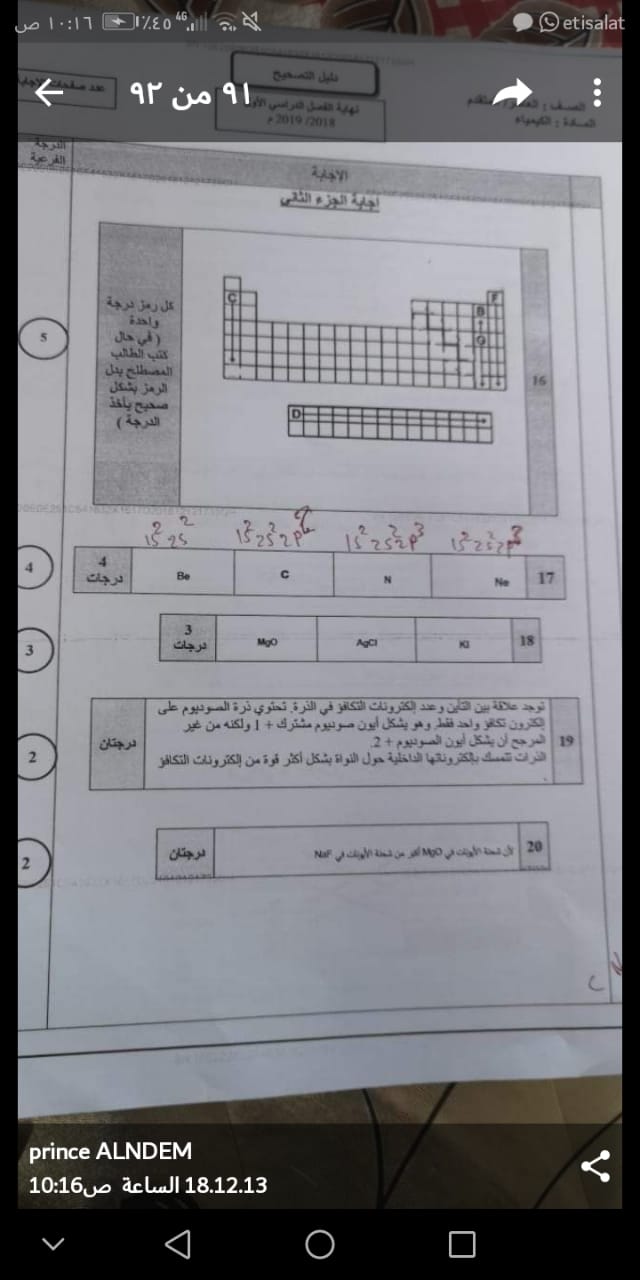 ص ١٠:١٦ ٪٤٥ 4G etisalat
٩١ من ٩٢
دليل التصحيح
نهاية الفصل الدراسي الأول
2019/2018 م
المادة : الكيمياء
عدد صفحات الإجابة
الدرجة
الفرعية
الإجابة
إجابة الجزء الثاني
16
C F B G D
كل رمز درجة
واحدة
( في حال
كتب الطالب
المصطلح يدل
الرمز بشكل
صحيح يأخذ
الدرجة )
5
1s² 2s² 1s² 2s² 2p² 1s² 2s² 2p³ 1s² 2s² 2p
17 Ne N C Be 4 درجات
4
18 KI AgCl MgO 3 درجات
3
19
توجد علاقة بين التأين وعدد إلكترونات التكافؤ في الذرة. تحتوي ذرة الصوديوم على
إلكترون تكافؤ واحد فقط وهو يشكل أيون صوديوم مشترك + 1 ولكنه من غير
المرجح أن يشكل أيون الصوديوم + 2.
الذرات تتمسك بإلكتروناتها الداخلية حول النواة بشكل أكثر قوة من إلكترونات التكافؤ
درجتان
2
20 لأن شحنة الأيونات في MgO أكبر من شحنة الأيونات في NaF درجتان
2
C N
prince ALNDEM
18.12.13 الساعة 10:16ص